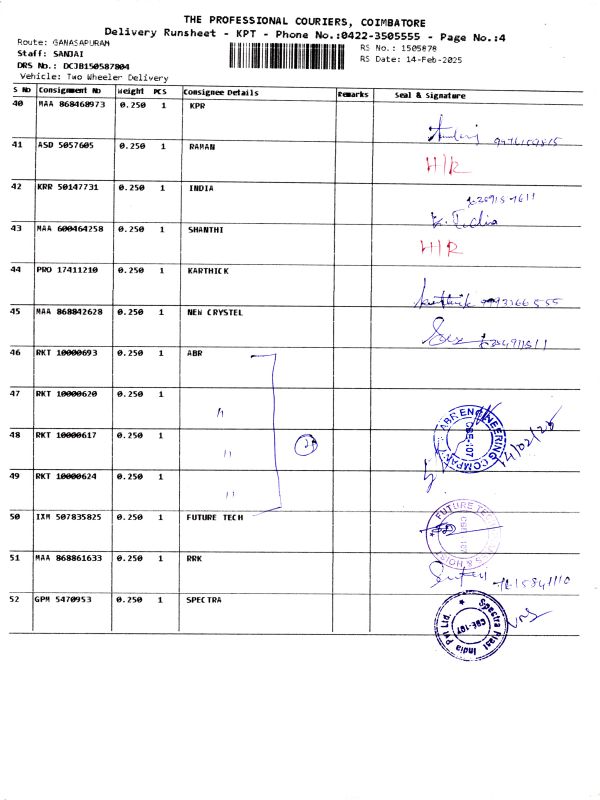 THE PROFESSIONAL COURIERS, COIMBATORE
Delivery Runsheet - KPT - Phone No.:0422-3505555 - Page No.:4
Route: GANASAPURAM
RS No.: 1505878
Staff: SANJAI
RS Date: 14-Feb-2025
DRS No.: DCJB150587804
Vehicle: Two Wheeler Delivery
S No Consignment No Weight PCS Consignee Details Remarks Seal & Signature
40 MAA 868468973 0.250 1 KPR
41 ASD 5057605 0.250 1 RAMAN
H/R
42 KRR 50147731 0.250 1 INDIA
K. India
43 MAA 600464258 0.250 1 SHANTHI
H/R
44 PRO 17411210 0.250 1 KARTHICK
Karthik
45 MAA 868842628 0.250 1 NEW CRYSTEL
46 RKT 10000693 0.250 1 ABR
47 RKT 10000620 0.250 1
"
ABR ENGINEERING COMPANY
CBE-107
14/02/25
48 RKT 10000617 0.250 1
"
49 RKT 10000624 0.250 1
"
50 IXM 507835825 0.250 1 FUTURE TECH
FUTURE
51 MAA 868861633 0.250 1 RRK
52 GPM 5470953 0.250 1 SPECTRA
Spectra Plast India Pvt Ltd.
CBE-107